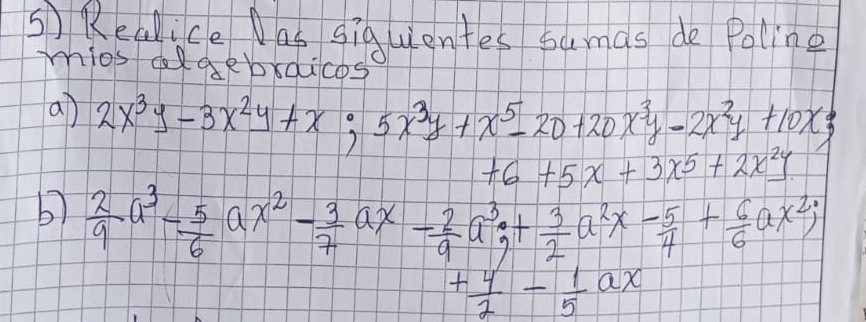 5) Realice las siguientes sumas de Polino
mios algebraicos
a) 2x³y - 3x²y + x ; 5x³y + x⁵ - 20 + 20x³y - 2x²y + 10x ;
+6 + 5x + 3x5 + 2x²y
b) 2/9 a³ - 5/6 ax² - 3/7 ax - 2/9 a³ ; + 3/2 a²x - 5/4 + 6/6 ax² ;
+ 4/2 - 1/5 ax